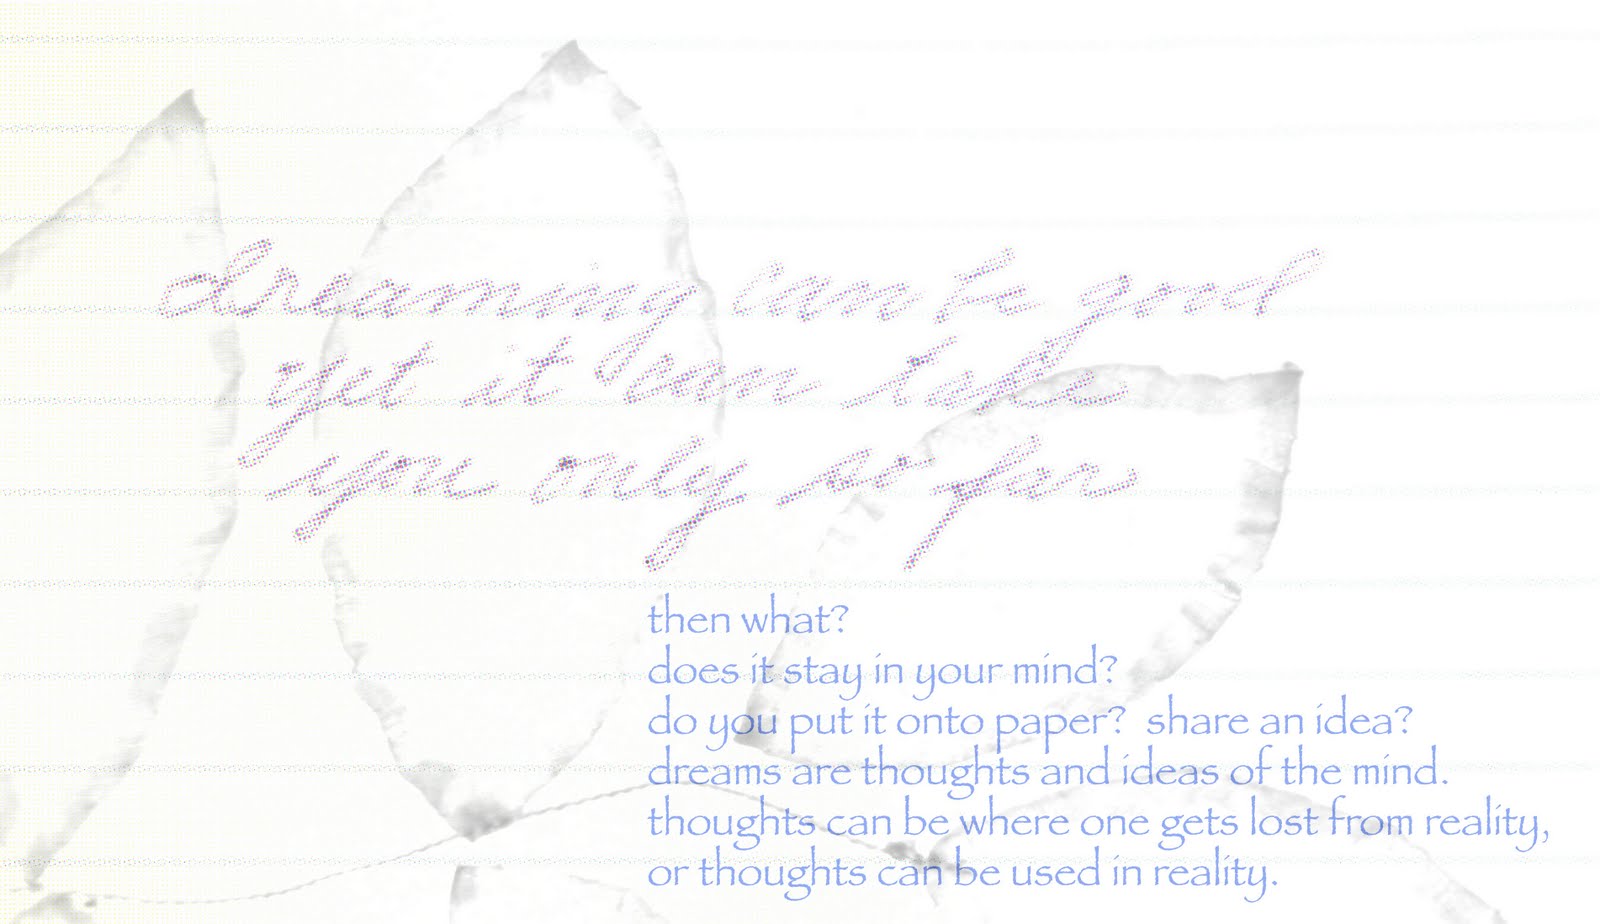 dreaming can be good
yet it can take
you only so far
then what?
does it stay in your mind?
do you put it onto paper?  share an idea?
dreams are thoughts and ideas of the mind.
thoughts can be where one gets lost from reality,
or thoughts can be used in reality.